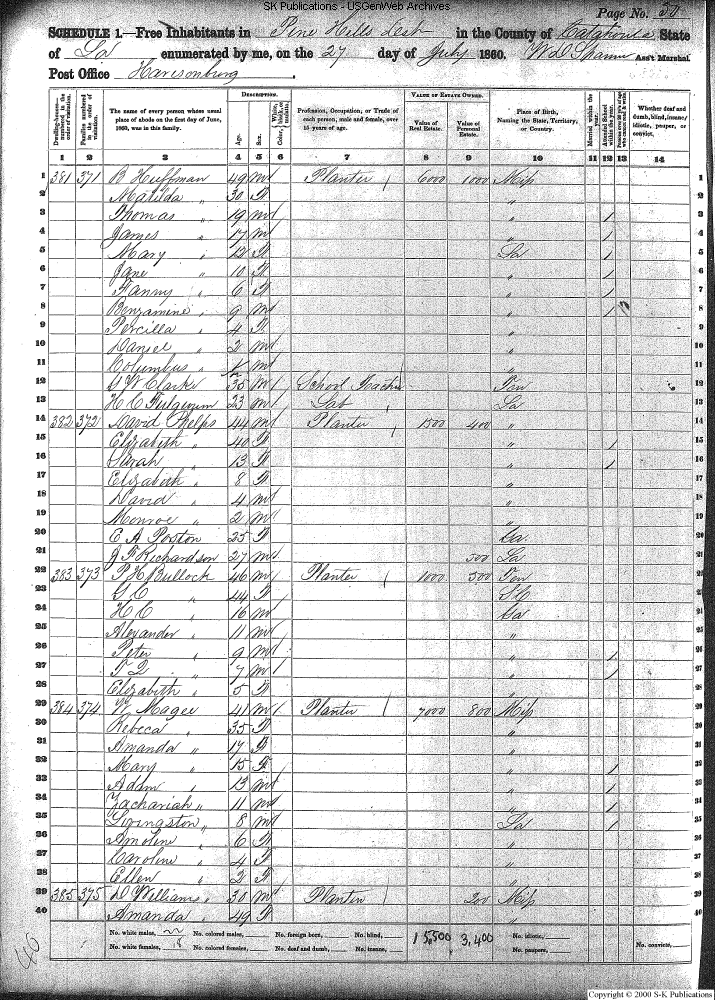 SK Publications - USGenWeb Archives
Page No. 50
SCHEDULE 1.—Free Inhabitants in Pine Hills Desk in the County of Catahoula State
of La enumerated by me, on the 27 day of July 1860. Ass't Marshal.
Post Office Harisonburg
DESCRIPTION. VALUE OF ESTATE OWNED.
Dwelling-houses—numbered in the order of visitation. Families numbered in the order of visitation. The name of every person whose usual place of abode on the first day of June, 1860, was in this family. Age. Sex. Color, White, black, or mulatto. Profession, Occupation, or Trade of each person, male and female, over 15 years of age. Value of Real Estate. Value of Personal Estate. Place of Birth, Naming the State, Territory, or Country. Married within the year. Attended School within the year. Whether deaf and dumb, blind, insane, idiotic, pauper, or convict.
1 2 3 4 5 6 7 8 9 10 11 12 13 14
1 381 371 B Huffman 49 m Planter 6000 1000 Miss 1
2 Matilda " 30 F " 2
3 Thomas " 19 m " / 3
4 James " 17 m " / 4
5 Mary " 12 F La / 5
6 Jane " 10 F " / 6
7 Fanny " 6 F " / 7
8 Benjamine " 9 m " / 8
9 Percilla " 4 F " 9
10 Daniel " 2 m " 10
11 Columbus " m " 11
12 G W Clark 35 m School Teacher Ten 12
13 H C Fulgium 23 m Lab La 13
14 382 372 David Phelps 44 m Planter 1500 400 " 14
15 Elizabeth " 40 F " / 15
16 Sarah " 13 F " / 16
17 Elizabeth " 8 F " 17
18 David " 4 m " 18
19 Monroe " 2 m " 19
20 E A Poston 25 F Ga. 20
21 J F Richardson 27 m 500 La 21
22 383 373 P H Bullock 46 m Planter 1000 500 Ten 22
23 44 F SC 23
24 H C " 16 m Ga 24
25 Alexander " 11 m " 25
26 Peter " 9 m " / 26
27 " 7 m " / 27
28 Elizabeth " 5 F " 28
29 384 374 W Magee 41 m Planter 7000 800 Miss 29
30 Rebeca " 35 F " 30
31 Amanda " 17 F " 31
32 Mary " 15 F " / 32
33 Adam " 13 m " / 33
34 Zachariah " 11 m " / 34
35 Livingston " 8 m La / 35
36 Amoline " 6 F " 36
37 Caroline " 4 F " 37
38 Ellen " 2 F " 38
39 385 375 D Williams 30 m Planter 200 Miss 39
40 Amanda " 49 F " 40
No. white males, 22 No. colored males, No. foreign born, No. blind, 15,500 3,400 No. idiotic,
No. white females, 18 No. colored females, No. deaf and dumb, No. insane, No. paupers, No. convicts,
40
Copyright © 2000 S-K Publications